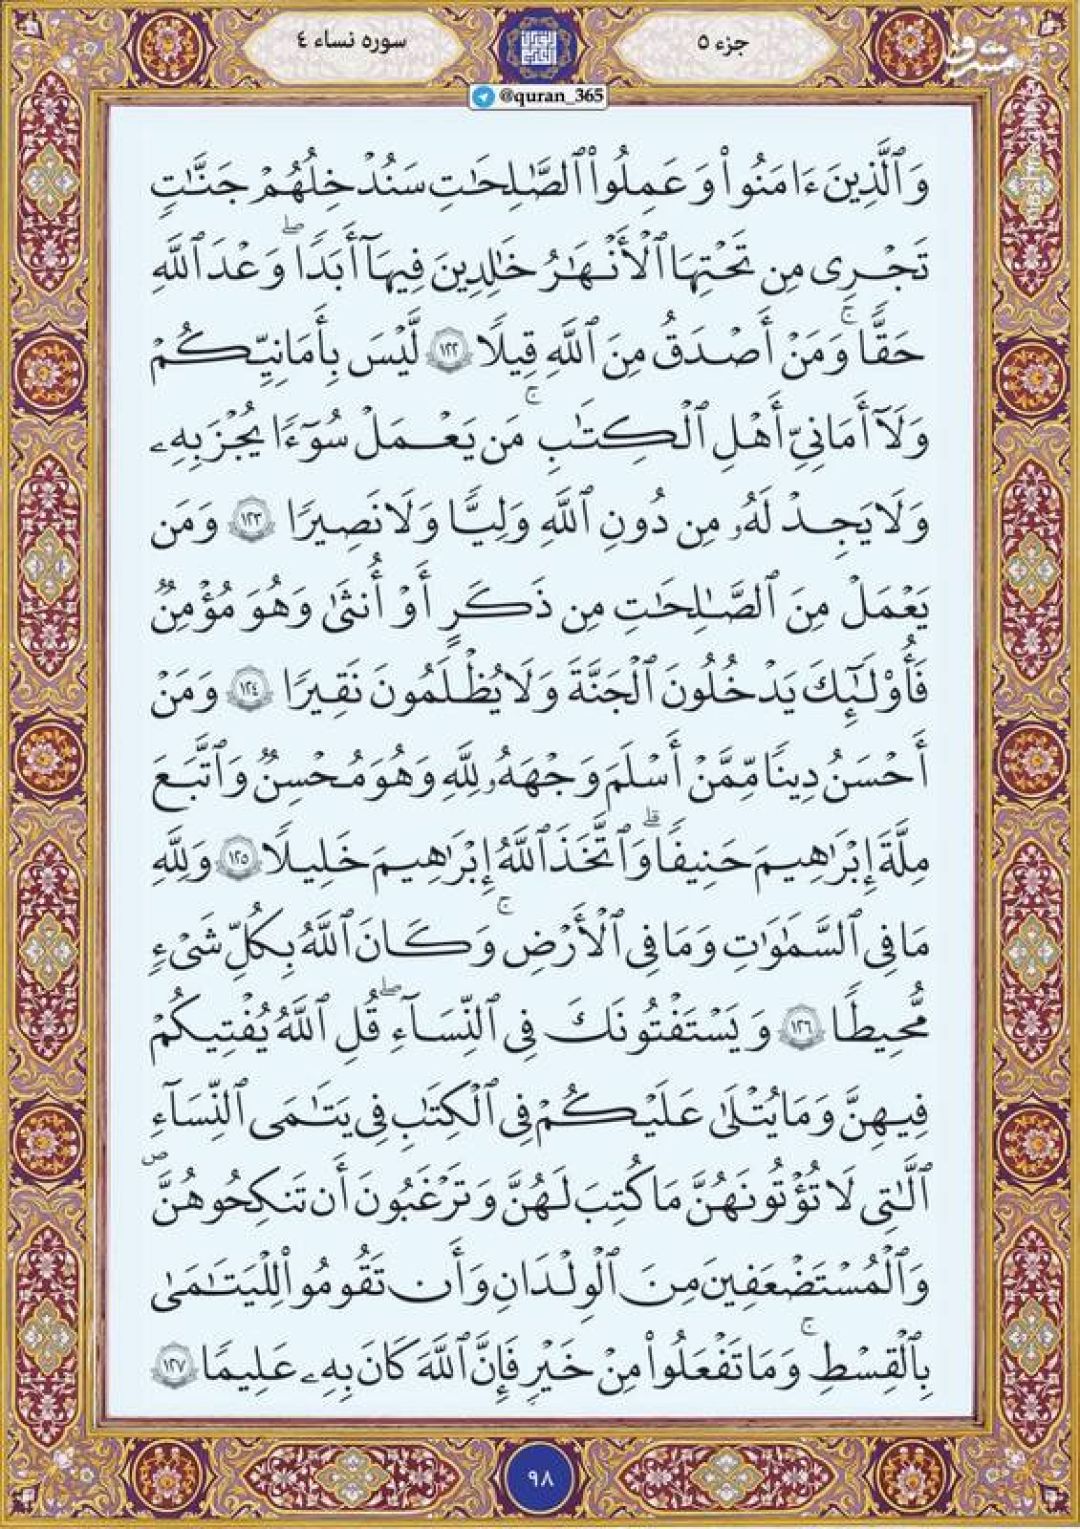 جزء ٥
سوره نساء ٤
@quran_365
مشرق
mashreghnews.ir
وَٱلَّذِينَ ءَامَنُوا۟ وَعَمِلُوا۟ ٱلصَّـٰلِحَـٰتِ سَنُدْخِلُهُمْ جَنَّـٰتٍ
تَجْرِى مِن تَحْتِهَا ٱلْأَنْهَـٰرُ خَـٰلِدِينَ فِيهَآ أَبَدًا ۖ وَعْدَ ٱللَّهِ
حَقًّا ۚ وَمَنْ أَصْدَقُ مِنَ ٱللَّهِ قِيلًا ١٢٢ لَّيْسَ بِأَمَانِيِّكُمْ
وَلَآ أَمَانِىِّ أَهْلِ ٱلْكِتَـٰبِ ۗ مَن يَعْمَلْ سُوٓءًا يُجْزَ بِهِۦ
وَلَا يَجِدْ لَهُۥ مِن دُونِ ٱللَّهِ وَلِيًّا وَلَا نَصِيرًا ١٢٣ وَمَن
يَعْمَلْ مِنَ ٱلصَّـٰلِحَـٰتِ مِن ذَكَرٍ أَوْ أُنثَىٰ وَهُوَ مُؤْمِنٌ
فَأُو۟لَـٰٓئِكَ يَدْخُلُونَ ٱلْجَنَّةَ وَلَا يُظْلَمُونَ نَقِيرًا ١٢٤ وَمَنْ
أَحْسَنُ دِينًا مِّمَّنْ أَسْلَمَ وَجْهَهُۥ لِلَّهِ وَهُوَ مُحْسِنٌ وَٱتَّبَعَ
مِلَّةَ إِبْرَٰهِيمَ حَنِيفًا ۗ وَٱتَّخَذَ ٱللَّهُ إِبْرَٰهِيمَ خَلِيلًا ١٢٥ وَلِلَّهِ
مَا فِى ٱلسَّمَـٰوَٰتِ وَمَا فِى ٱلْأَرْضِ ۚ وَكَانَ ٱللَّهُ بِكُلِّ شَىْءٍ
مُّحِيطًا ١٢٦ وَيَسْتَفْتُونَكَ فِى ٱلنِّسَآءِ ۖ قُلِ ٱللَّهُ يُفْتِيكُمْ
فِيهِنَّ وَمَا يُتْلَىٰ عَلَيْكُمْ فِى ٱلْكِتَـٰبِ فِى يَتَـٰمَى ٱلنِّسَآءِ
ٱلَّـٰتِى لَا تُؤْتُونَهُنَّ مَا كُتِبَ لَهُنَّ وَتَرْغَبُونَ أَن تَنكِحُوهُنَّ
وَٱلْمُسْتَضْعَفِينَ مِنَ ٱلْوِلْدَٰنِ وَأَن تَقُومُوا۟ لِلْيَتَـٰمَىٰ
بِٱلْقِسْطِ ۚ وَمَا تَفْعَلُوا۟ مِنْ خَيْرٍ فَإِنَّ ٱللَّهَ كَانَ بِهِۦ عَلِيمًا ١٢٧
٩٨